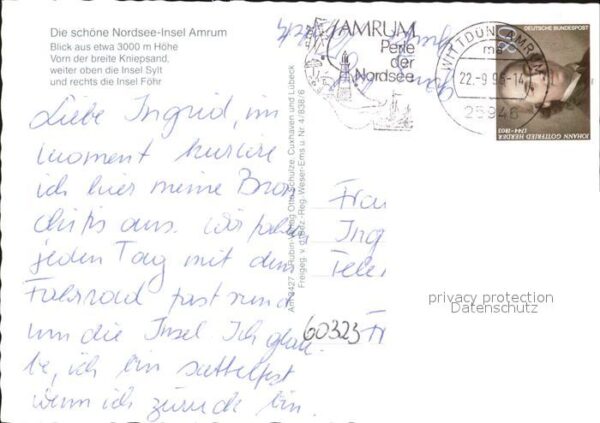 Die schöne Nordsee-Insel Amrum
Blick aus etwa 3000 m Höhe
Vorn der breite Kniepsand,
weiter oben die Insel Sylt
und rechts die Insel Föhr
Liebe Ingrid, im
Moment kuriere
ich hier meine Bron
chitis aus. Wir fahren
jeden Tag mit dem
Fahrrad fast rund
um die Insel. Ich glau
be, ich bin sattelfest
wenn ich zurück bin.
Rubin-Verlag Otto Schulze, Cuxhaven und Lübeck
Freigeg. v. d. Bez.-Reg. Weser-Ems u. Nr. 4/838/6
AMRUM
Perle
der
Nordsee
WITTDÜN, AMRUM
22.-9.95-14
25946
DEUTSCHE BUNDESPOST
80
JOHANN GOTTFRIED HERDER
1744-1803
Frau
Ing
60323
privacy protection
Datenschutz